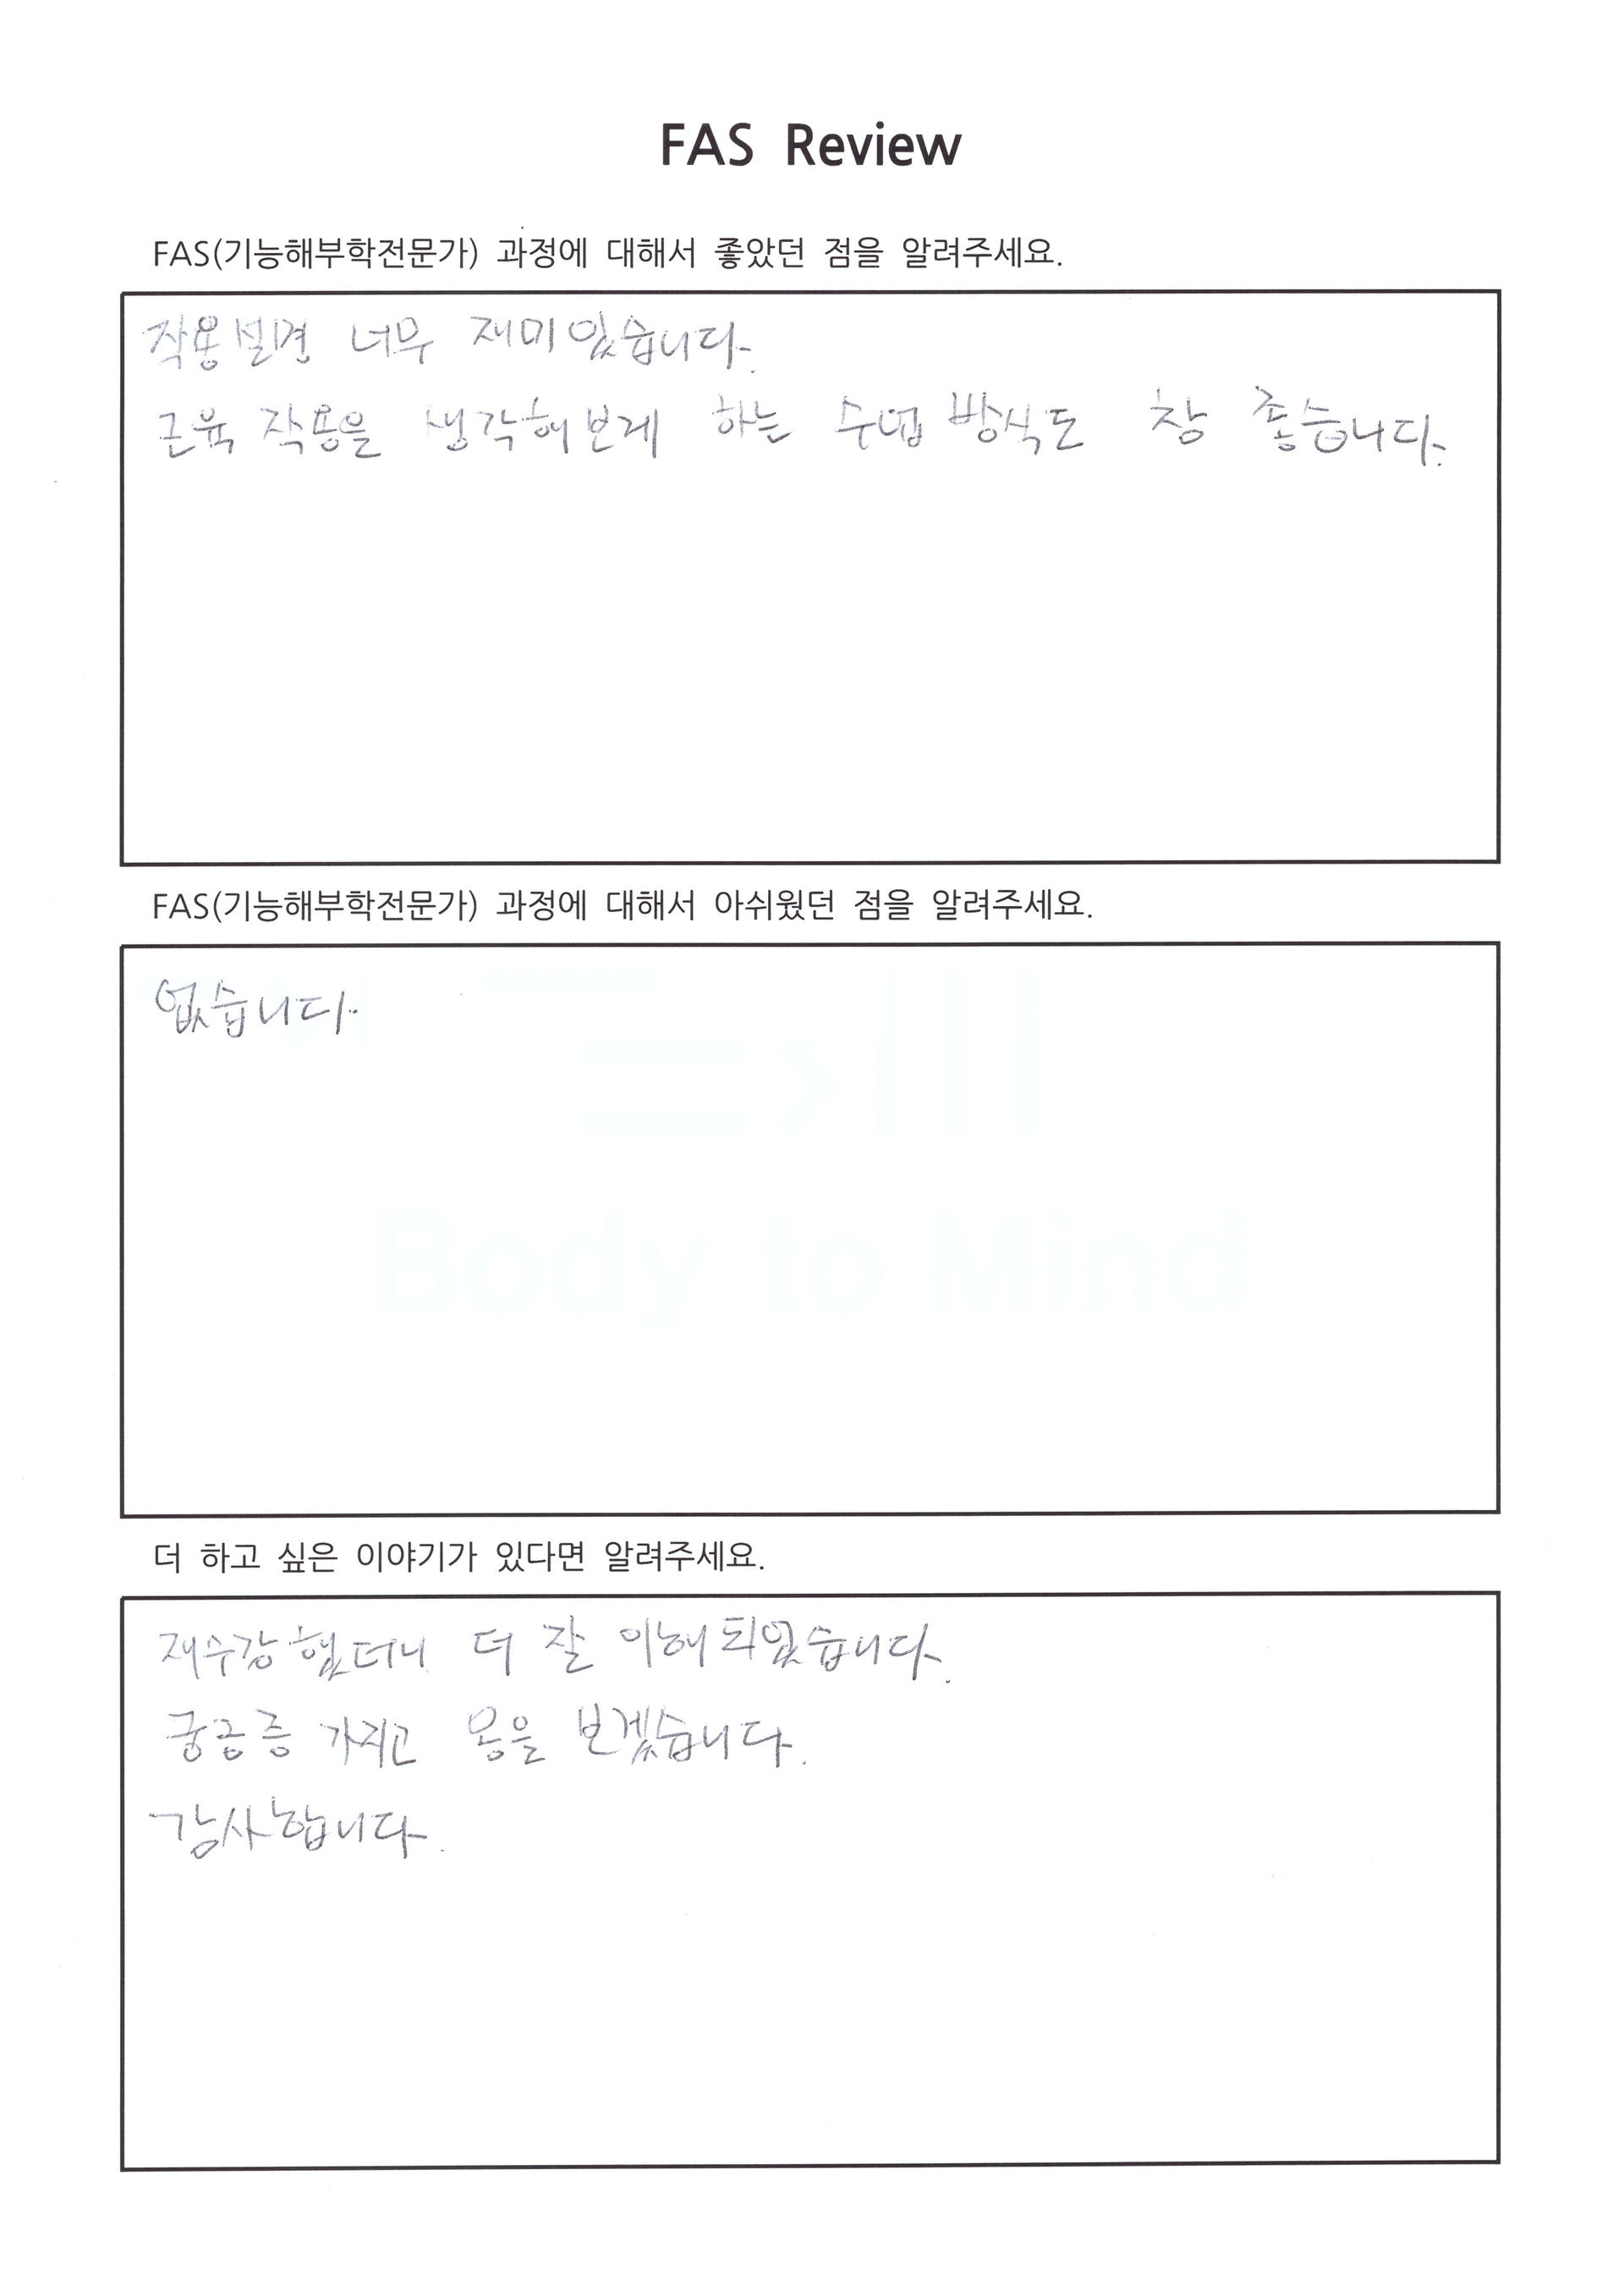 FAS Review
FAS(기능해부학전문가) 과정에 대해서 좋았던 점을 알려주세요.
작용발견 너무 재미있습니다.
근육 작용을 생각해보게 하는 수업 방식도 참 좋습니다.
FAS(기능해부학전문가) 과정에 대해서 아쉬웠던 점을 알려주세요.
없습니다.
Body to Mind
더 하고 싶은 이야기가 있다면 알려주세요.
재수강 했더니 더 잘 이해되었습니다.
궁금증 가지고 몸을 보겠습니다.
감사합니다.